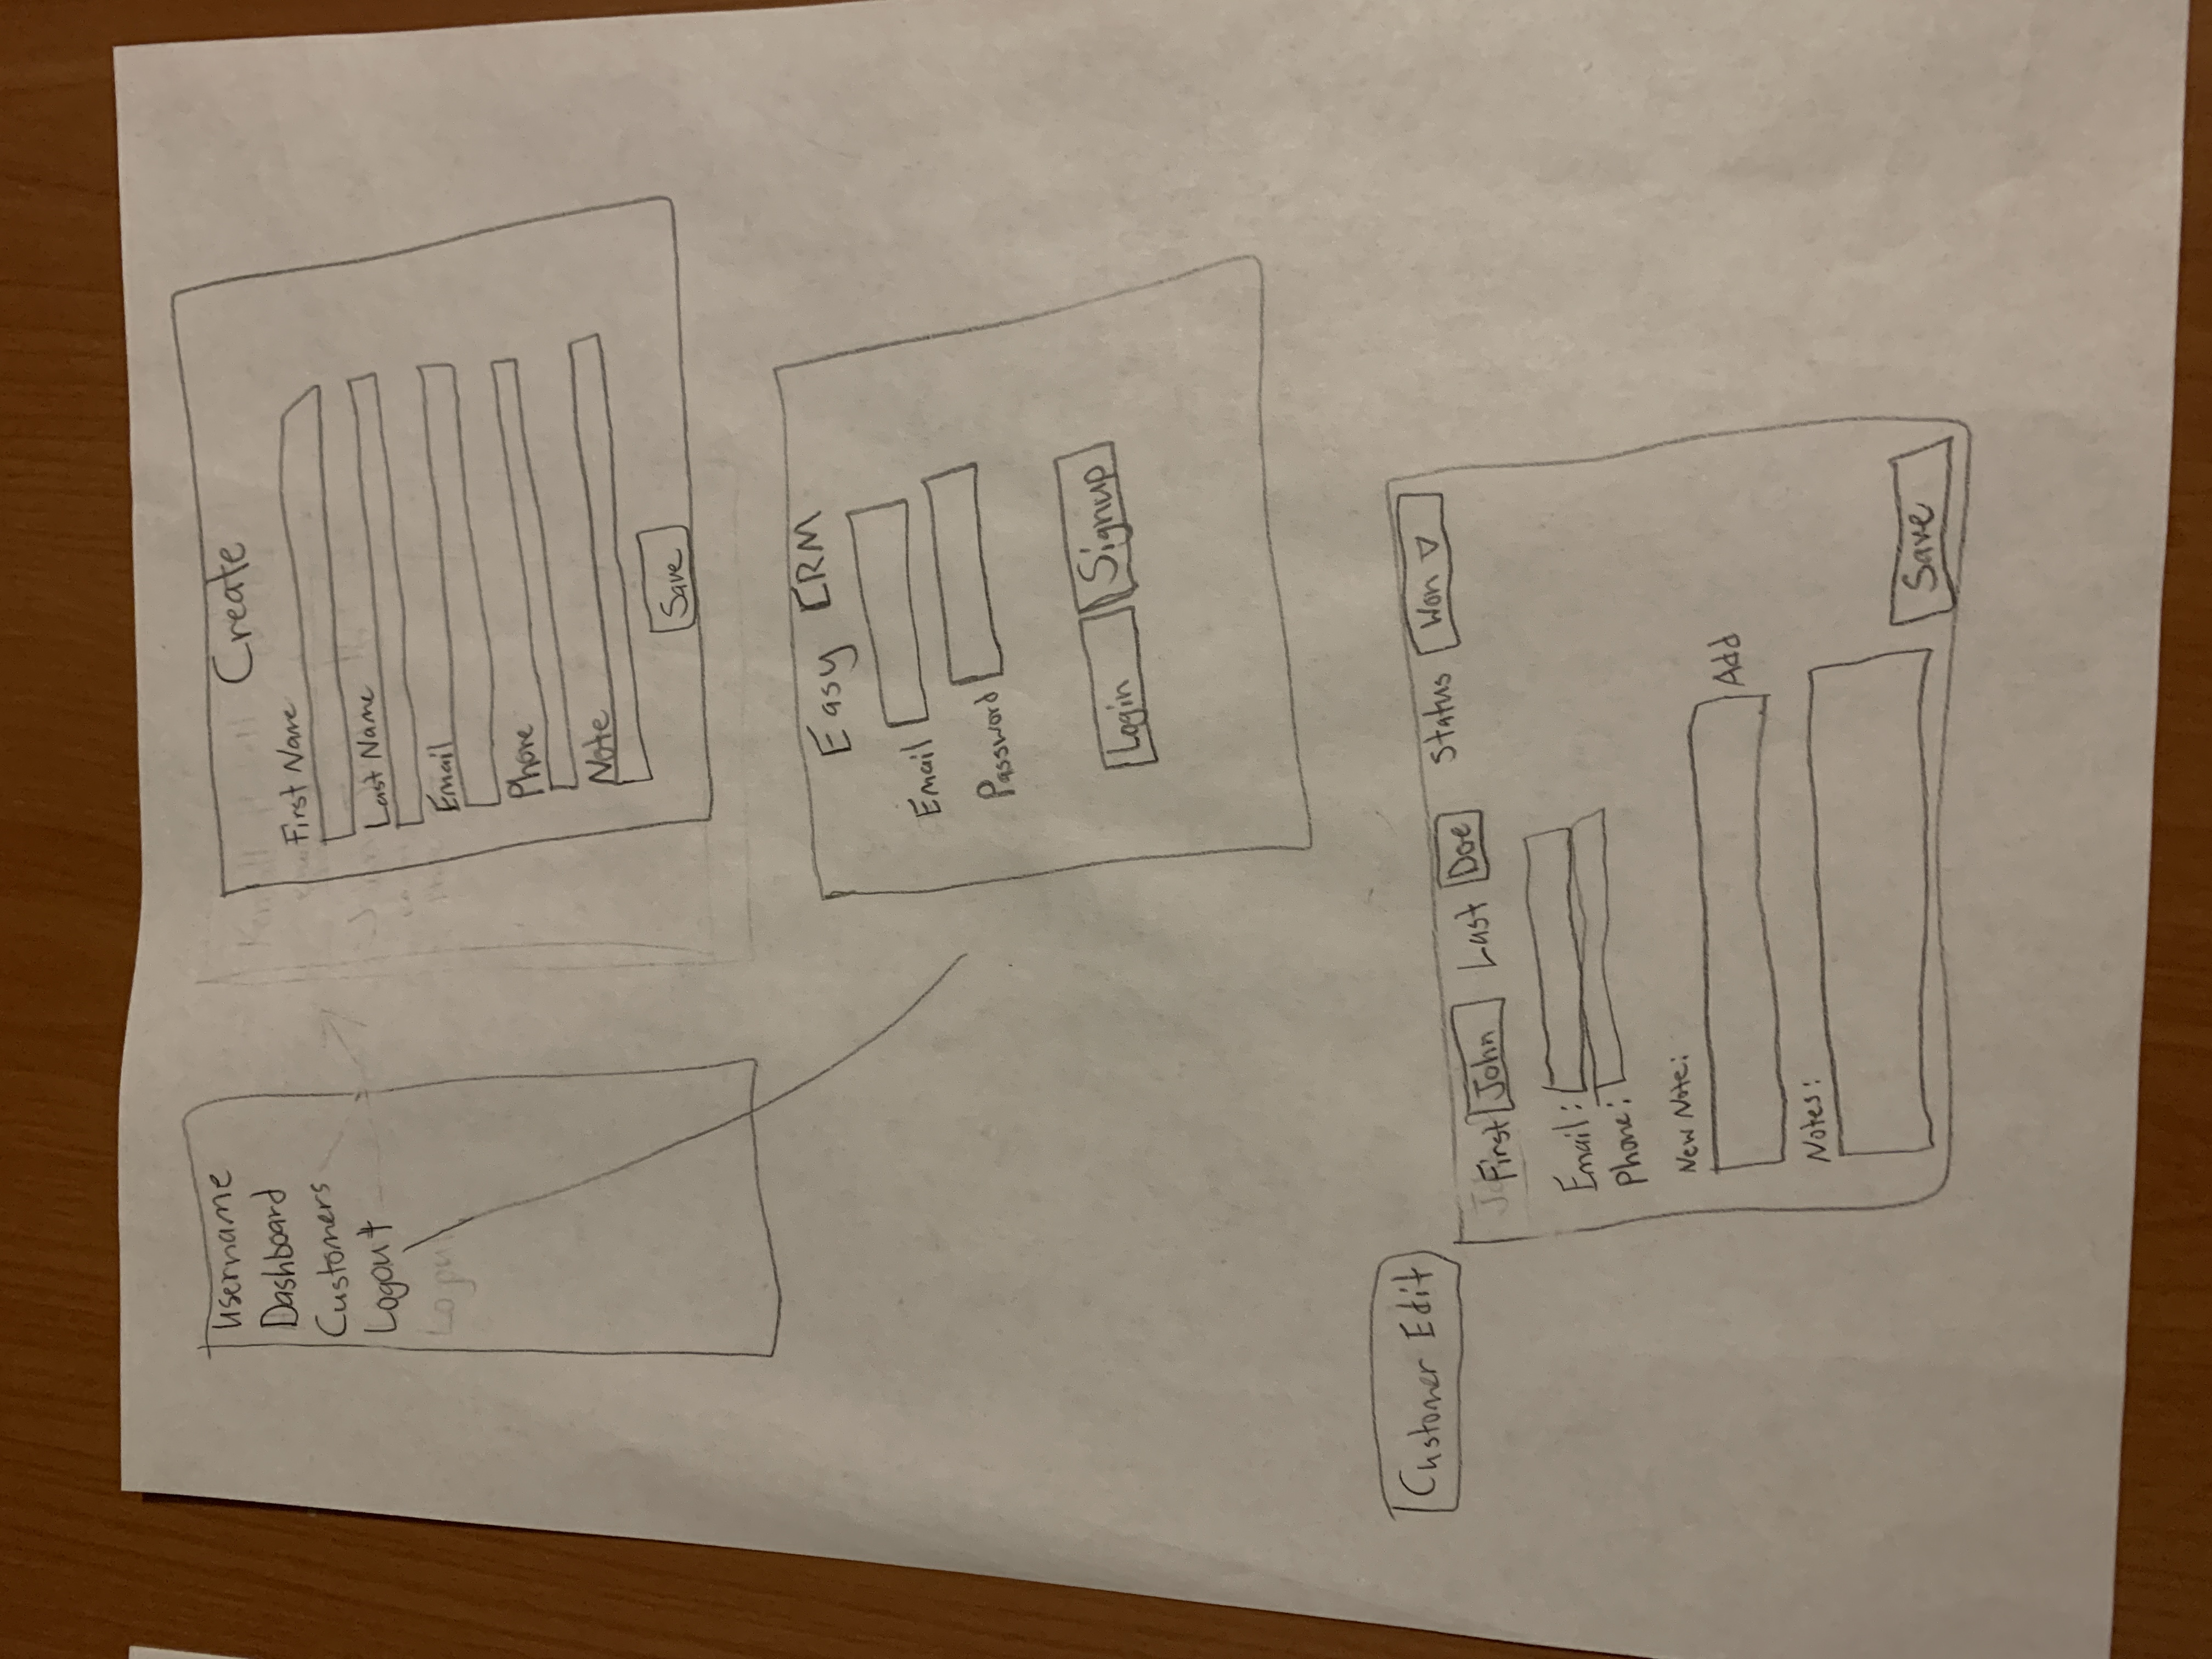 Username
Dashboard
Customers
Logout
Create
First Name
Last Name
Email
Phone
Note
Save
Easy CRM
Email
Password
Login Signup
Customer Edit
First John Last Doe Status Won ▽
Email:
Phone:
New Note:
Add
Notes:
Save